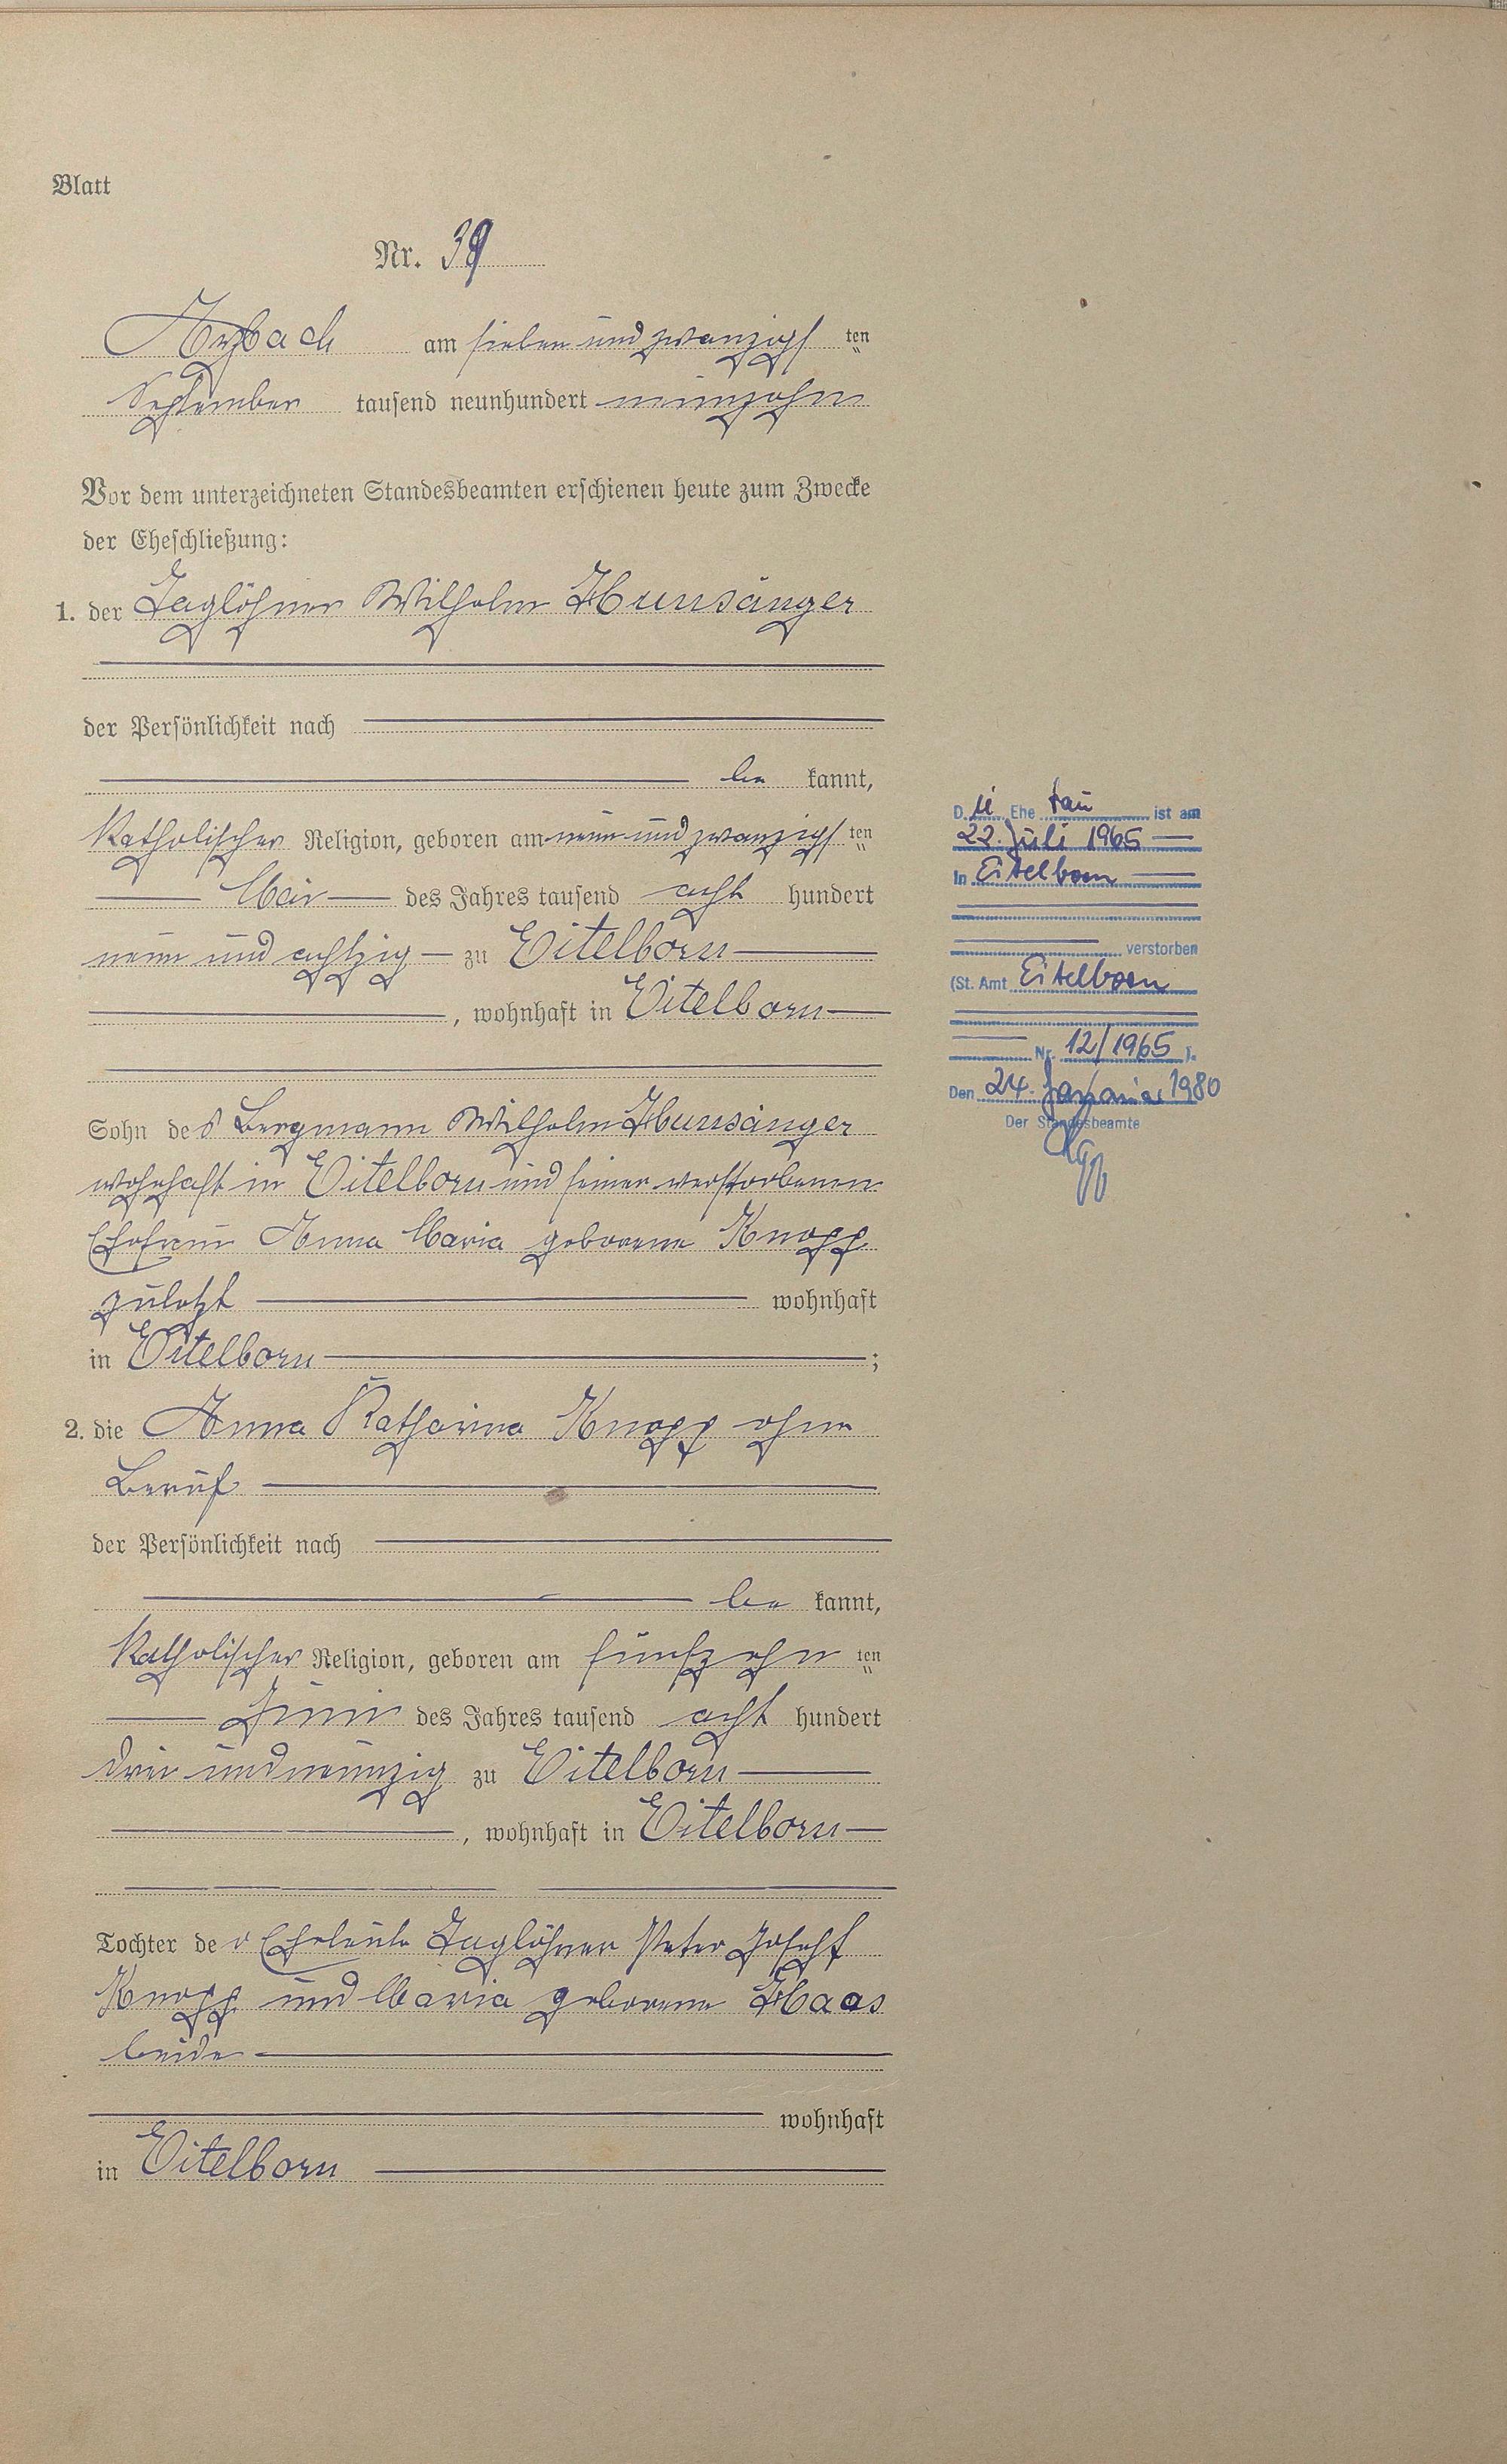 Blatt
Nr. 39
Arzbach am sieben und zwanzigs ten
September tausend neunhundert neunzehn
Vor dem unterzeichneten Standesbeamten erschienen heute zum Zwecke
der Eheschließung:
1. der Taglöhner Wilhelm Hunsänger
der Persönlichkeit nach
be kannt,
Katholischer Religion, geboren am neun und zwanzigs ten
Mai des Jahres tausend acht hundert
neun und achtzig zu Eitelborn
, wohnhaft in Eitelborn
Sohn des Bergmann Wilhelm Hunsänger
wohnhaft in Eitelborn und seiner verstorbenen
Ehefrau Anna Maria geborene Knopp
zuletzt wohnhaft
in Eitelborn ;
2. die Anna Katharina Knopp ohne
Beruf
der Persönlichkeit nach
be kannt,
Katholischer Religion, geboren am fünfzehn ten
Juni des Jahres tausend acht hundert
drei und neunzig zu Eitelborn
, wohnhaft in Eitelborn
Tochter der Eheleute Taglöhner Peter Joseph
Knopp und Maria geborene Haas
beide
wohnhaft
in Eitelborn
Die Ehefrau ist am
22. Juli 1965
in Eitelborn
verstorben
(St. Amt Eitelborn
Nr. 12/1965 ).
Den 24. Januar 1980
Der Standesbeamte